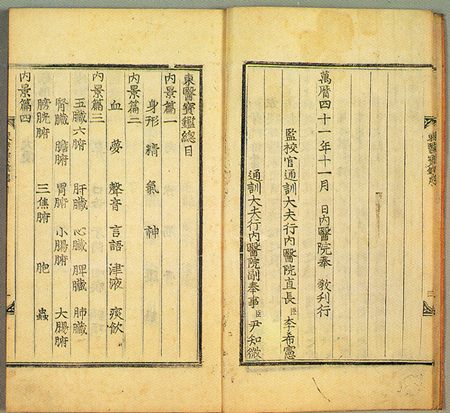 萬曆四十一年十一月 日內醫院奉 敎刊行
監校官通訓大夫行內醫院直長臣 李希憲
通訓大夫行內醫院副奉事臣 尹知微
東醫寶鑑總目
內景篇一
身形 精 氣 神
內景篇二
血 夢 聲音 言語 津液 痰飮
內景篇三
五臟六腑 肝臟 心臟 脾臟 肺臟
腎臟 膽腑 胃腑 小腸腑 大腸腑
膀胱腑 三焦腑 胞 蟲
內景篇四